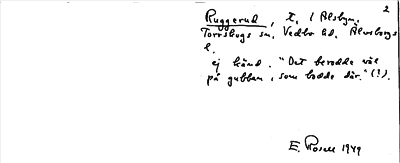 2
Ruggerud, t. i Alsbyn,
Torrskogs sn, Vedbo hd, Älvsborgs
l.
ej känd. "Det berodde väl
på gubben, som bodde där." (!).
E. Rosell 1949